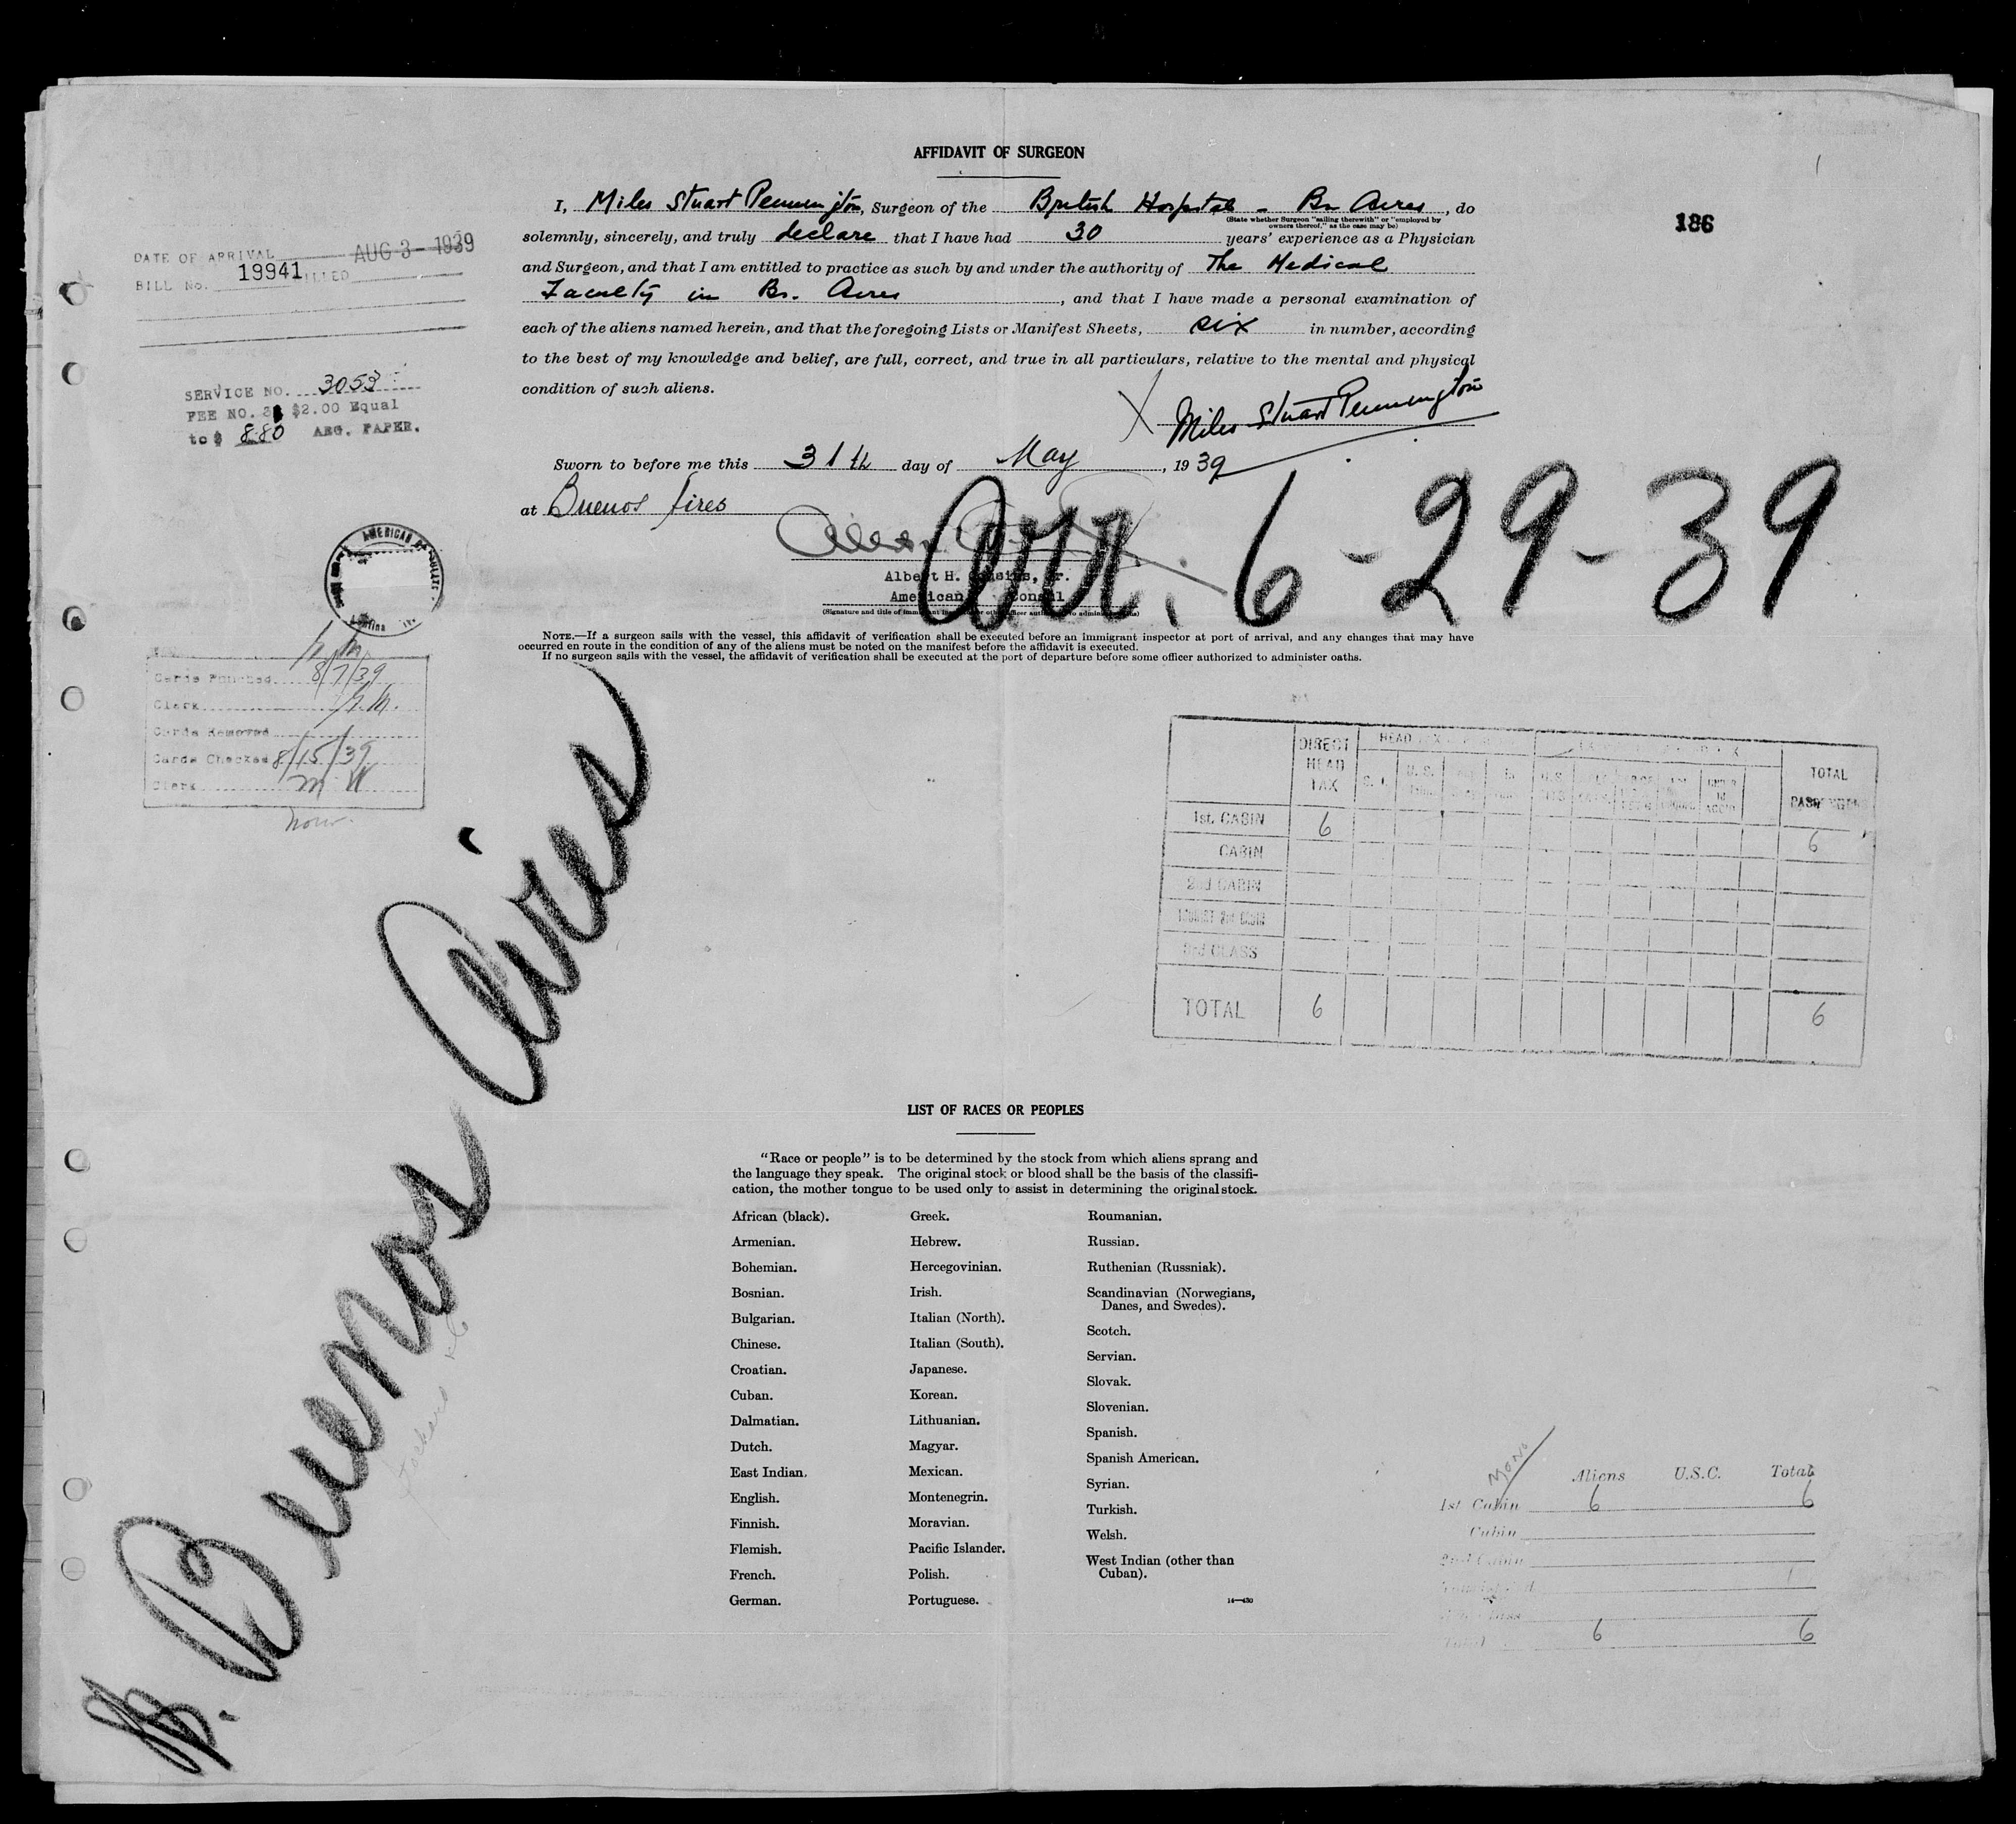 AFFIDAVIT OF SURGEON
186
I, Miles Stuart Pennington, Surgeon of the British Hospital - Bs. Aires, do
(State whether Surgeon "sailing therewith" or "employed by
owners thereof," as the case may be)
solemnly, sincerely, and truly declare that I have had 30 years' experience as a Physician
and Surgeon, and that I am entitled to practice as such by and under the authority of The Medical
Faculty in Bs. Aires, and that I have made a personal examination of
each of the aliens named herein, and that the foregoing Lists or Manifest Sheets, six in number, according
to the best of my knowledge and belief, are full, correct, and true in all particulars, relative to the mental and physical
condition of such aliens.
X Miles Stuart Pennington
Sworn to before me this 31th day of May, 1939
at Buenos Aires
Albert H. Cousins, Jr.
American Consul
Arr. 6-29-39
NOTE.—If a surgeon sails with the vessel, this affidavit of verification shall be executed before an immigrant inspector at port of arrival, and any changes that may have
occurred en route in the condition of any of the aliens must be noted on the manifest before the affidavit is executed.
If no surgeon sails with the vessel, the affidavit of verification shall be executed at the port of departure before some officer authorized to administer oaths.
DATE OF ARRIVAL AUG 3 - 1939
BILL No. 19941
SERVICE NO. 3053
FEE NO. $2.00 Equal
to $ 8.80 ARG. PAPER.
AMERICAN
Cards Punched 8/7/39
Clerk
Cards Removed
Cards Checked 8/15/39
Clerk M W
Buenos Aires
DIRECT HEAD TAX
TOTAL PASSENGERS
1st. CABIN 6 6
CABIN
2nd CABIN
3rd CLASS
TOTAL 6 6
LIST OF RACES OR PEOPLES
"Race or people" is to be determined by the stock from which aliens sprang and
the language they speak. The original stock or blood shall be the basis of the classifi-
cation, the mother tongue to be used only to assist in determining the original stock.
African (black).
Armenian.
Bohemian.
Bosnian.
Bulgarian.
Chinese.
Croatian.
Cuban.
Dalmatian.
Dutch.
East Indian.
English.
Finnish.
Flemish.
French.
German.
Greek.
Hebrew.
Hercegovinian.
Irish.
Italian (North).
Italian (South).
Japanese.
Korean.
Lithuanian.
Magyar.
Mexican.
Montenegrin.
Moravian.
Pacific Islander.
Polish.
Portuguese.
Roumanian.
Russian.
Ruthenian (Russniak).
Scandinavian (Norwegians,
Danes, and Swedes).
Scotch.
Servian.
Slovak.
Slovenian.
Spanish.
Spanish American.
Syrian.
Turkish.
Welsh.
West Indian (other than
Cuban).
14—430
Aliens U.S.C. Total
1st Cabin 6 6
Cabin
2nd Cabin
Total 6 6